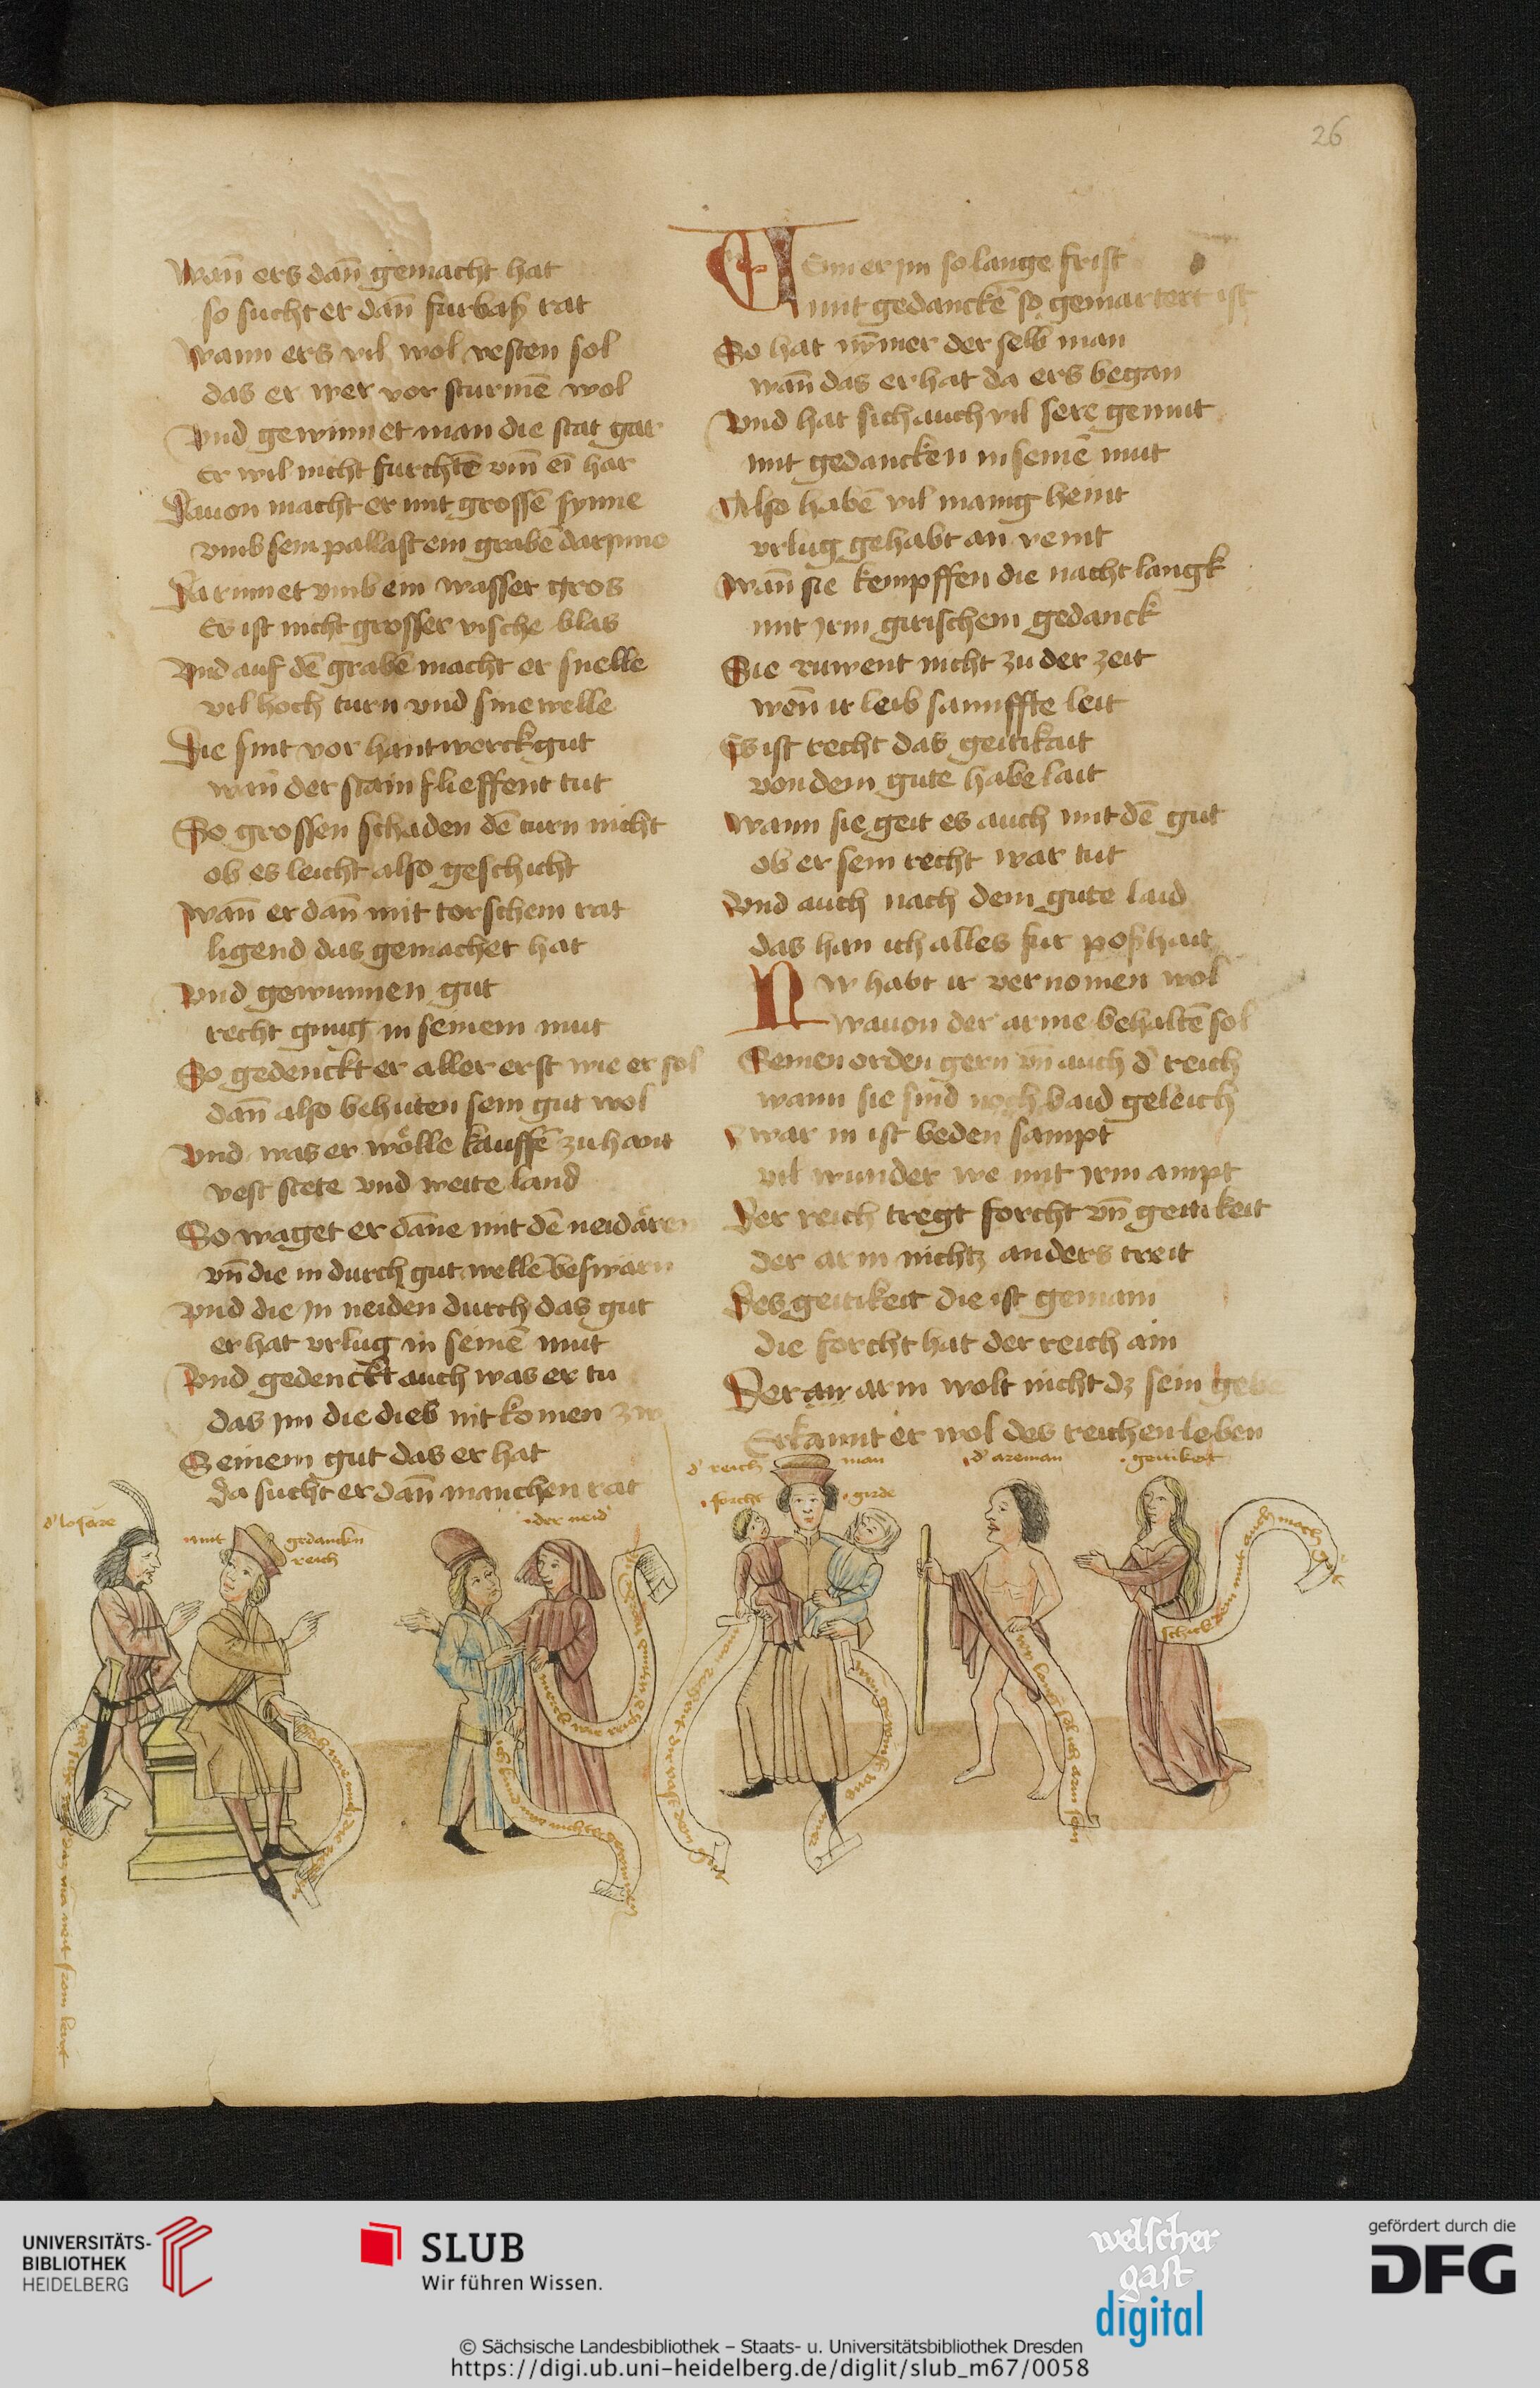 26
Wañ ers dañ gemacht hat
so sucht er dañ furbaß rat
Wann ers vil wol vesten sol
das er wer vor sturmē wol
Vnd gewinnet man die stat gar
Er wil nicht furchtē vm̄ ei har
Dauon macht er mit grossē synne
vmb sein pallast ein grabē darynne
Darinnet vmb ein wasser gros
Es ist nicht grosser vische blas
Vnd auf dē grabē macht er snelle
vil hoch turn vnd sinewelle
Die sint vor hantwerck gut
wañ der stain flieffent tut
So grossen schaden dē turn nicht
ob es leicht also geschicht
Wañ er dañ mit torschem rat
ligend das gemachet hat
Vnd gewunnen gut
recht gnug in seinem mut
So gedenckt er aller erst wie er sol
dañ also behuten sein gut wol
Vnd was er wölle kauffē zuhant
vest stete vnd weite land
So waget er dāne mit dē neidären
vñ die in durch gut wellē beswärn
Vnd die in neiden durch das gut
er hat vrlug in seinē mut
Vnd gedenckt auch was er tu
das jm die dieb nit komen zw
Seinem gut das er hat
da sucht er dañ manchen rat
Wenn er jm so lange frist
mit gedanckē so gemartert ist
So hat nymer der selb man
wañ das er hat da ers began
Vnd hat sich auch vil sere gemut
mit gedancken in seinē mut
Also habē vil manig heint
vrlug gehabt an veint
Wañ sie kempffen die nacht langk
mit jrm girischem gedanck
Sie ruwent nicht zu der zeit
wen̄ ir leib sannffte leit
Es ist recht das geitikait
von dem gute habe lait
Wann sie geit es auch mit dē gut
ob er sein recht war tut
Vnd auch nach dem gute laid
das han ich alles fur poßhait
Nw habt ir vernomen wol
wauon der arme behaltē sol
Seinen orden gern vñ auch d' reich
wann sie sind noch baid geleich
Zwar in ist beden sampt
vil wunder we mit jrm ampt
Der reich tregt forcht vñ geitikeit
der arm nichtz anders treit
Des geitikeit die ist gemain
die forcht hat der reich ain
Der arm wolt nicht dz sein gebe
Erkannt er wol des reichen leben
d' reich man
forcht
girde
d' areman
geitikeit
mit gedancken reich
der neid
merck wie reich
wy lang sol ich arm sein
UNIVERSITÄTS-
BIBLIOTHEK
HEIDELBERG
SLUB
Wir führen Wissen.
welscher
gast
digital
gefördert durch die
DFG
© Sächsische Landesbibliothek – Staats- u. Universitätsbibliothek Dresden
https://digi.ub.uni-heidelberg.de/diglit/slub_m67/0058